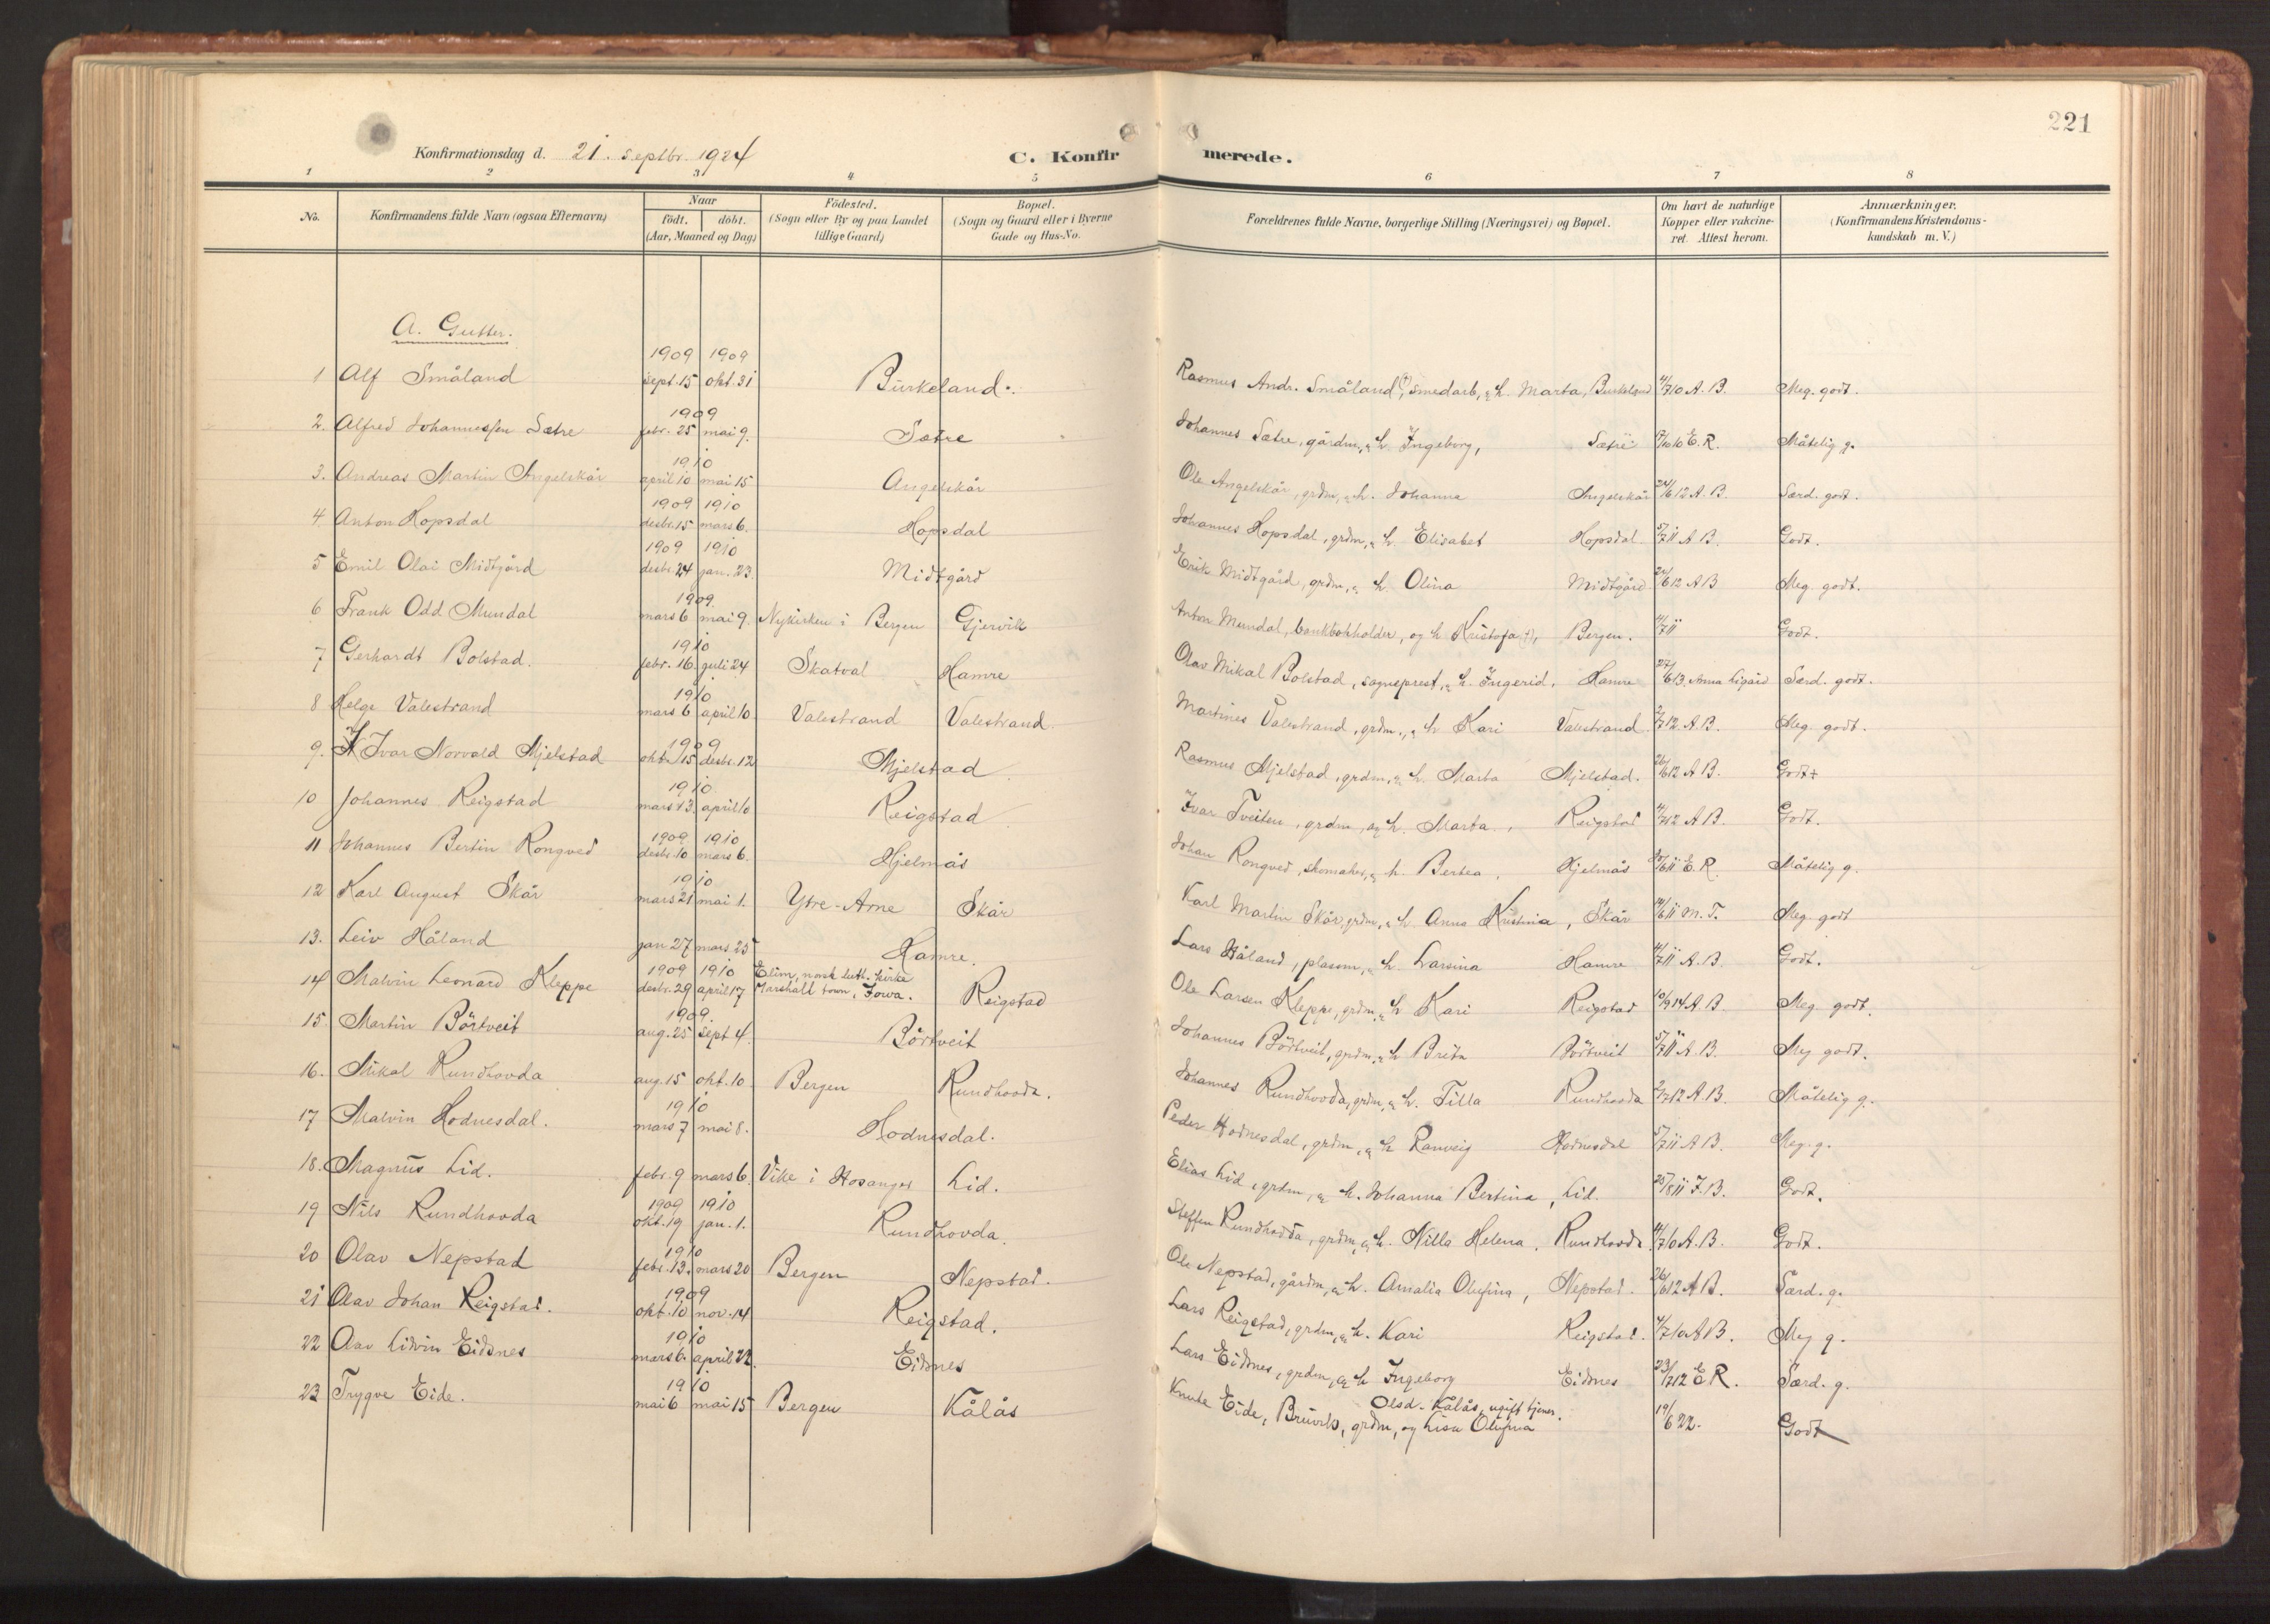 221
Konfirmationsdag d. 21. septbr. 1924 C. Konfirmerede.
1 2 3 4 5 6 7 8
No. Konfirmandens fulde Navn (ogsaa Efternavn) Naar født. døbt. (Aar, Maaned og Dag) Fødested. (Sogn eller By og paa Landet tillige Gaard) Bopæl. (Sogn og Gaard eller i Byerne Gade og Hus-No. Forældrenes fulde Navne, borgerlige Stilling (Næringsvei) og Bopæl. Om havt de naturlige Kopper eller vakcineret. Attest herom. Anmærkninger. (Konfirmandens Kristendomskundskab m. V.)
A. Gutter.
1 Alf Småland 1909 sept. 15 1909 okt. 31 Burkeland. Rasmus Andr. Småland (†), smedarb., & h. Marta, Burkeland 4/7 10 A. B. Meg. godt.
2. Alfred Johannessen Sætre 1909 febr. 25 mai 9. Sætre Johannes Sætre, gårdm., & h. Ingeborg, Sætre 17/10 10 E. R. Måtelig g.
3. Andreas Martin Angelskår 1910 april 10 mai 15 Angelskår Ole Angelskår, grdm., & h. Johanna Angelskår 24/6 12 A. B. Særd. godt.
4 Anton Hopsdal 1909 desbr. 15 1910 mars 6. Hopsdal Johannes Hopsdal, grdm., & h. Elisabet Hopsdal 5/7 11 A B. Godt.
5 Emil Olai Midtgård 1909 desbr. 24 1910 jan. 23. Midtgård Erik Midtgård, grdm., & h. Olina Midtgård 24/6 12 A B Meg. godt.
6 Frank Odd Mundal 1909. mars 6 mai 9. Nykirken i Bergen Gjervik Anton Mundal, bankbokholder, og h Kristofa (†), Bergen. 4/7 11 Godt.
7 Gerhardt Bolstad. 1910 febr. 16. juli 24 Skatval Hamre Olav Mikal Bolstad, sogneprest, & h. Ingerid, Hamre 27/6 13. Anna Ligård Særd. godt.
8 Helge Valestrand 1910 mars 6 april 10 Valestrand Valestrand. Martines Valestrand, grdm., & h Kari Valestrand 2/7 12 A. B. Meg. godt.
9. Ivar Norvald Mjelstad 1909 okt. 15 desbr. 12 Mjelstad Rasmus Mjelstad, grdm., & h. Marta Mjelstad. 26/6 12 A B. Godt
10 Johannes Reigstad 1910 mars 13. april 10 Reigstad Ivar Tveiten, grdm., og h. Marta, Reigstad 4/7 12 A B. Godt.
11 Johannes Bertin Rongved 1909 desbr. 10 1910 mars 6. Hjelmås Johan Rongved, skomaker, & h. Bertea, Hjelmås 30/6 11 E. R. Måtelig g.
12 Karl August Skår 1910 mars 21 mai 1. Ytre-Arne Skår Karl Martin Skår, grdm., & h. Anna Kristina, Skår 14/6 11 M. T. Meg. godt
13. Leiv Håland jan 27 mars 25 Hamre. Lars Håland, plasm., & h. Larsina Hamre 4/7 11 A. B. Godt.
14 Malvin Leonard Kleppe 1909 desbr. 29 1910 april 17 Elim, norsk luth. kirke Marshall town, Iowa. Reigstad Ole Larsen Kleppe, grdm., & h Kari Reigstad 10/9 14 A. B. Meg. godt.
15. Martin Börtveit 1909. aug. 25 sept 4. Börtveit Johannes Börtveit, grdm., & h Brita Börtveit 5/7 11 A. B. Meg godt.
16. Mikal Rundhovda aug. 15 okt. 10 Bergen Rundhovda. Johannes Rundhovda, grdm., & h. Tilla Rundhovda 2/7 12 A. B. Måtelig g.
17 Malvin Hodnesdal. 1910 mars 7 mai 8. Hodnesdal. Peder Hodnesdal, grdm., & h Ranveig Hodnesdal 5/7 11 A B. Meg. g.
18. Magnus Lid. febr. 9 mars 6. Vike i Hosanger Lid. Elias Lid, grdm., & h. Johanna Bertina, Lid. 28/8 11 J. B. Godt.
19 Nils Rundhovda 1909 okt. 19 1910 jan. 1. Rundhovda. Steffen Rundhovda, grdm., & h. Nilla Helena, Rundhovda. 4/7 10 A. B. Godt.
20 Olav Nepstad 1910 febr. 13. mars 20 Bergen Nepstad. Ole Nepstad, gårdm., & h. Amalia Olufina, Nepstad. 26/6 12 A B. Særd. g.
21 Olav Johan Reigstad. 1909 okt. 10 nov. 14 Reigstad. Lars Reigstad, grdm., & h. Kari Reigstad. 4/7 10 A B. Meg g.
22 Olav Lidvin Eidsnes 1910 mars 6. april 22. Eidsnes Lars Eidsnes, grdm., & h Ingeborg Eidsnes 23/7 12 E R. Særd. g.
23 Trygve Eide. 1910 mai 6 mai 15 Bergen Kålås Knute Eide, Bruvik, grdm., og Lisa Olufina Olsd. Kålås, ugift tjener. 19/6 22. Godt